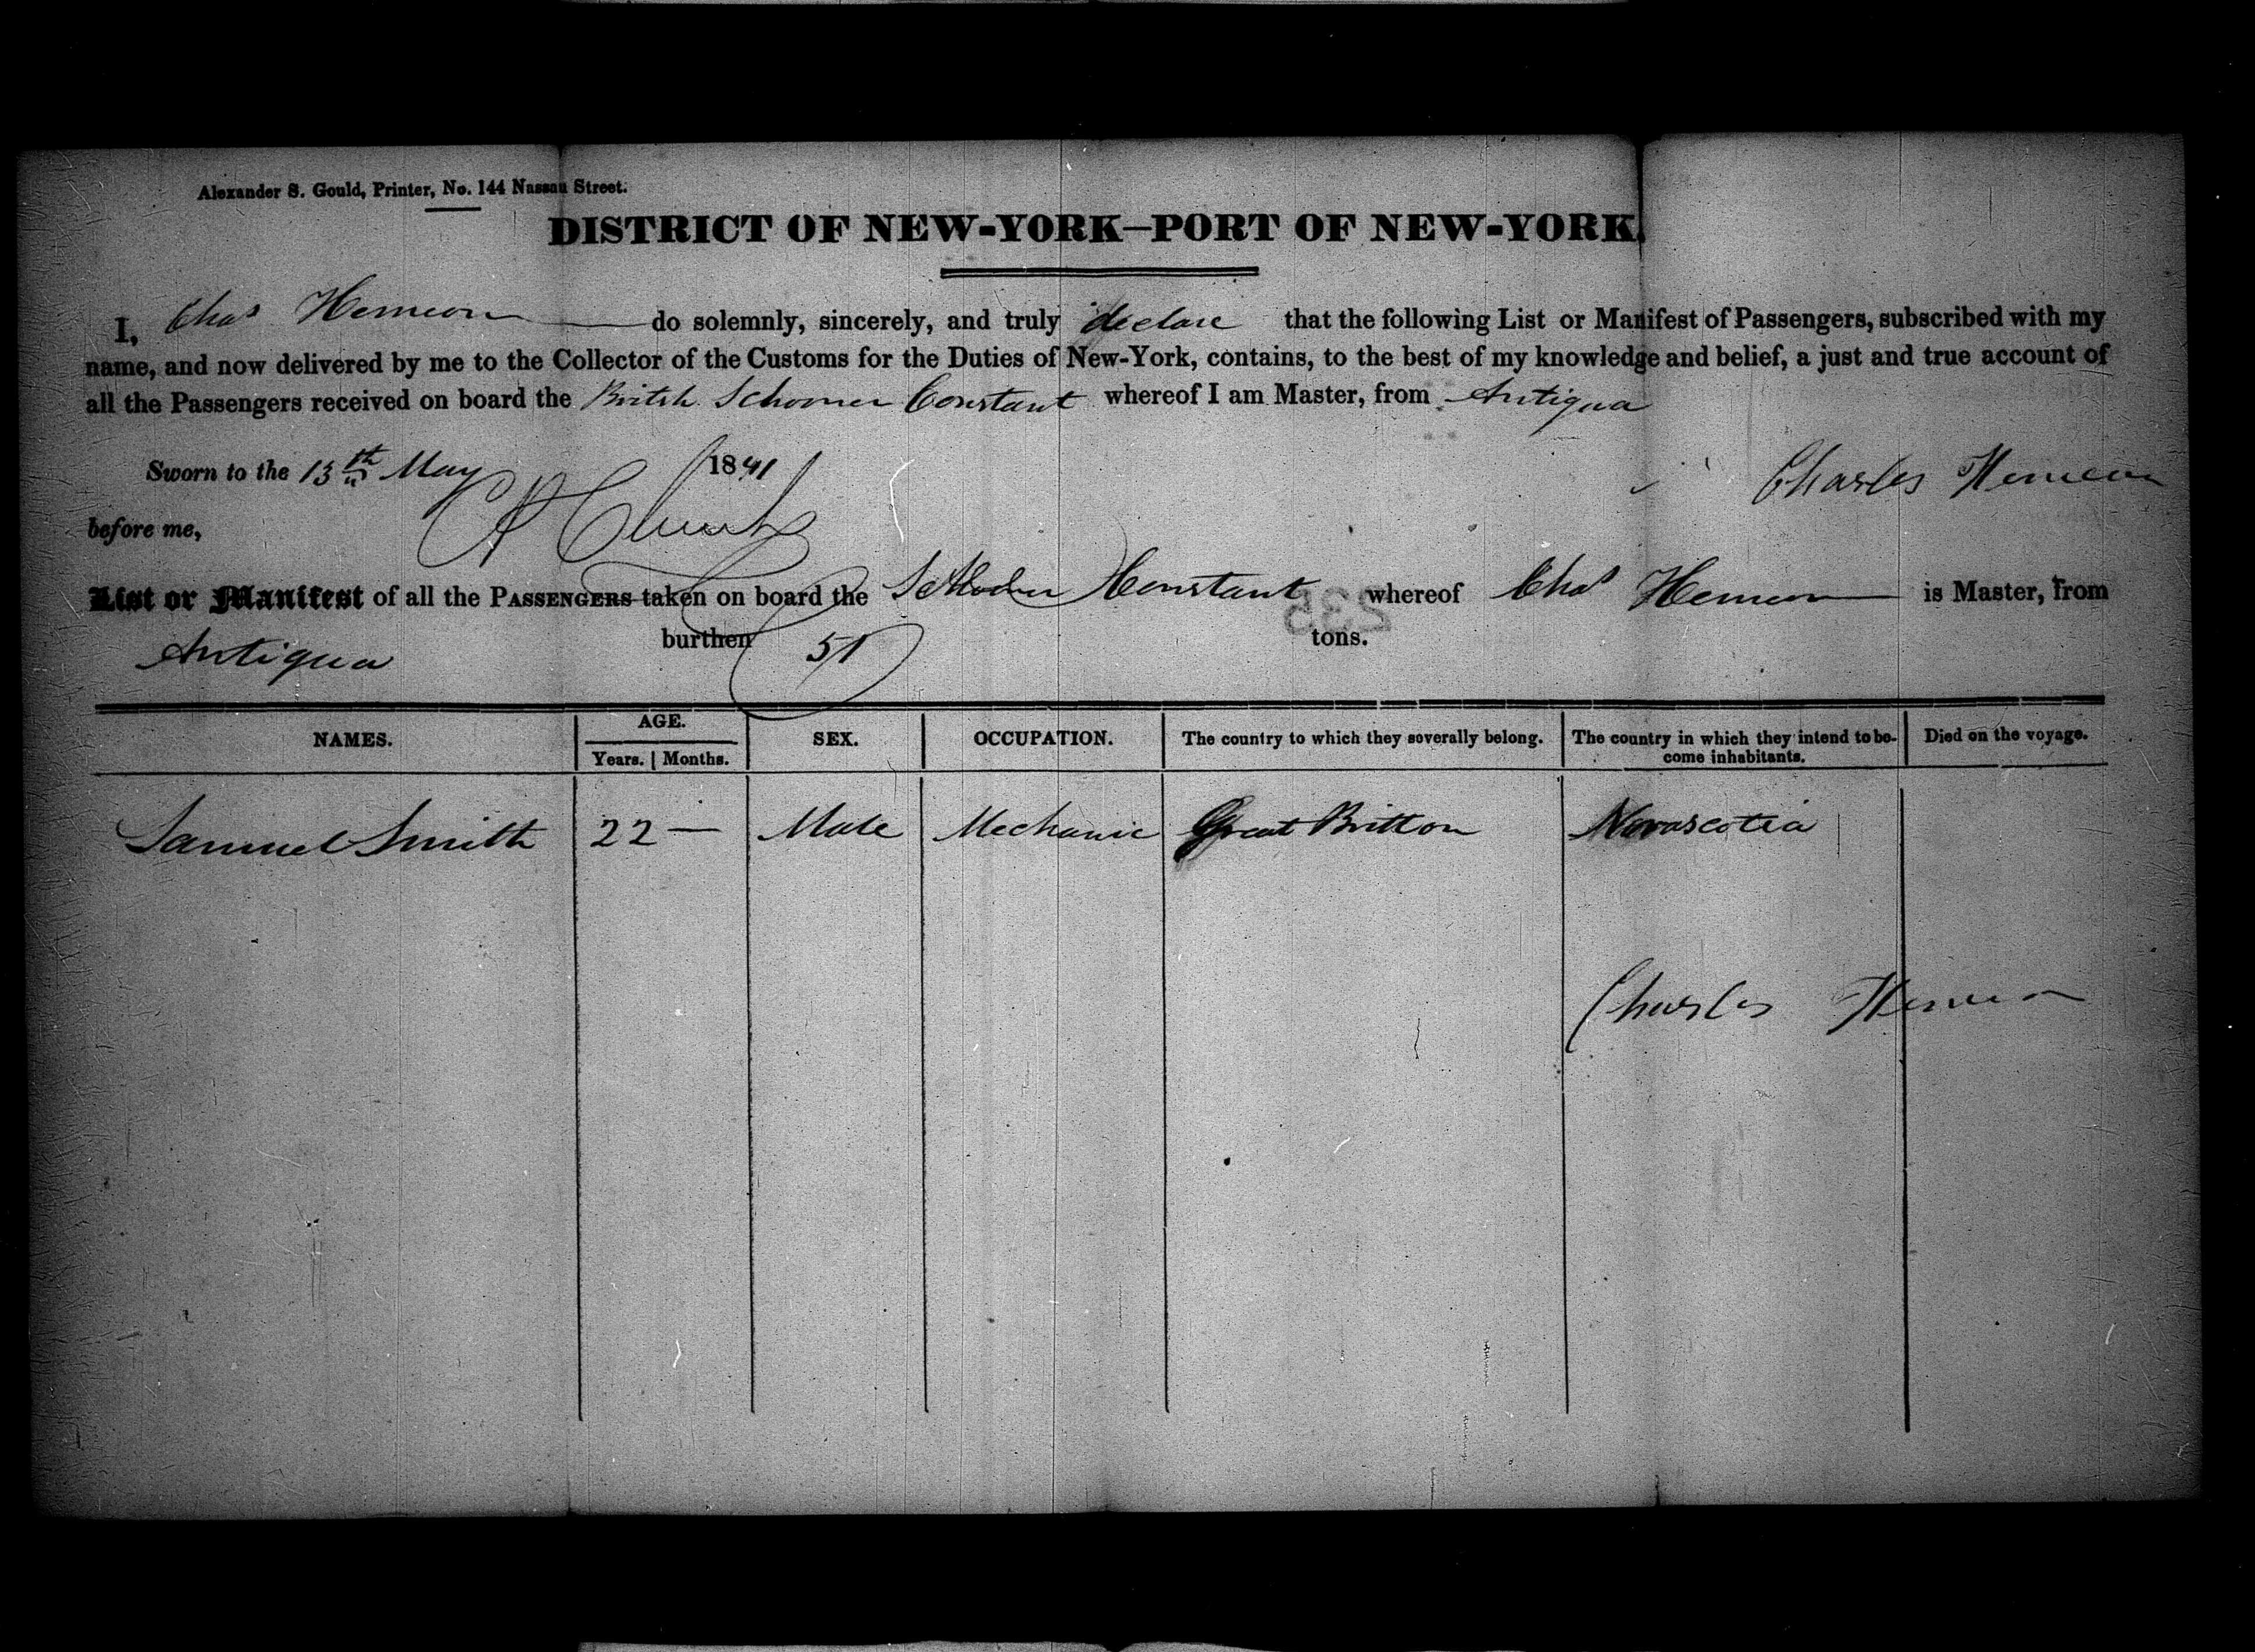 Alexander S. Gould, Printer, No. 144 Nassau Street.
DISTRICT OF NEW-YORK—PORT OF NEW-YORK.
I, Chas Hemeon do solemnly, sincerely, and truly declare that the following List or Manifest of Passengers, subscribed with my
name, and now delivered by me to the Collector of the Customs for the Duties of New-York, contains, to the best of my knowledge and belief, a just and true account of
all the Passengers received on board the British Schooner Constant whereof I am Master, from Antigua
Sworn to the 13th May 1841
Charles Hemeon
before me,
List or Manifest of all the PASSENGERS taken on board the Schooner Constant whereof Chas Hemeon is Master, from
Antigua burthen 51 tons.
235
NAMES. AGE. Years. | Months. SEX. OCCUPATION. The country to which they severally belong. The country in which they intend to become inhabitants. Died on the voyage.
Samuel Smith 22 — Male Mechanic Great Britton Novascotia
Charles Hemeon